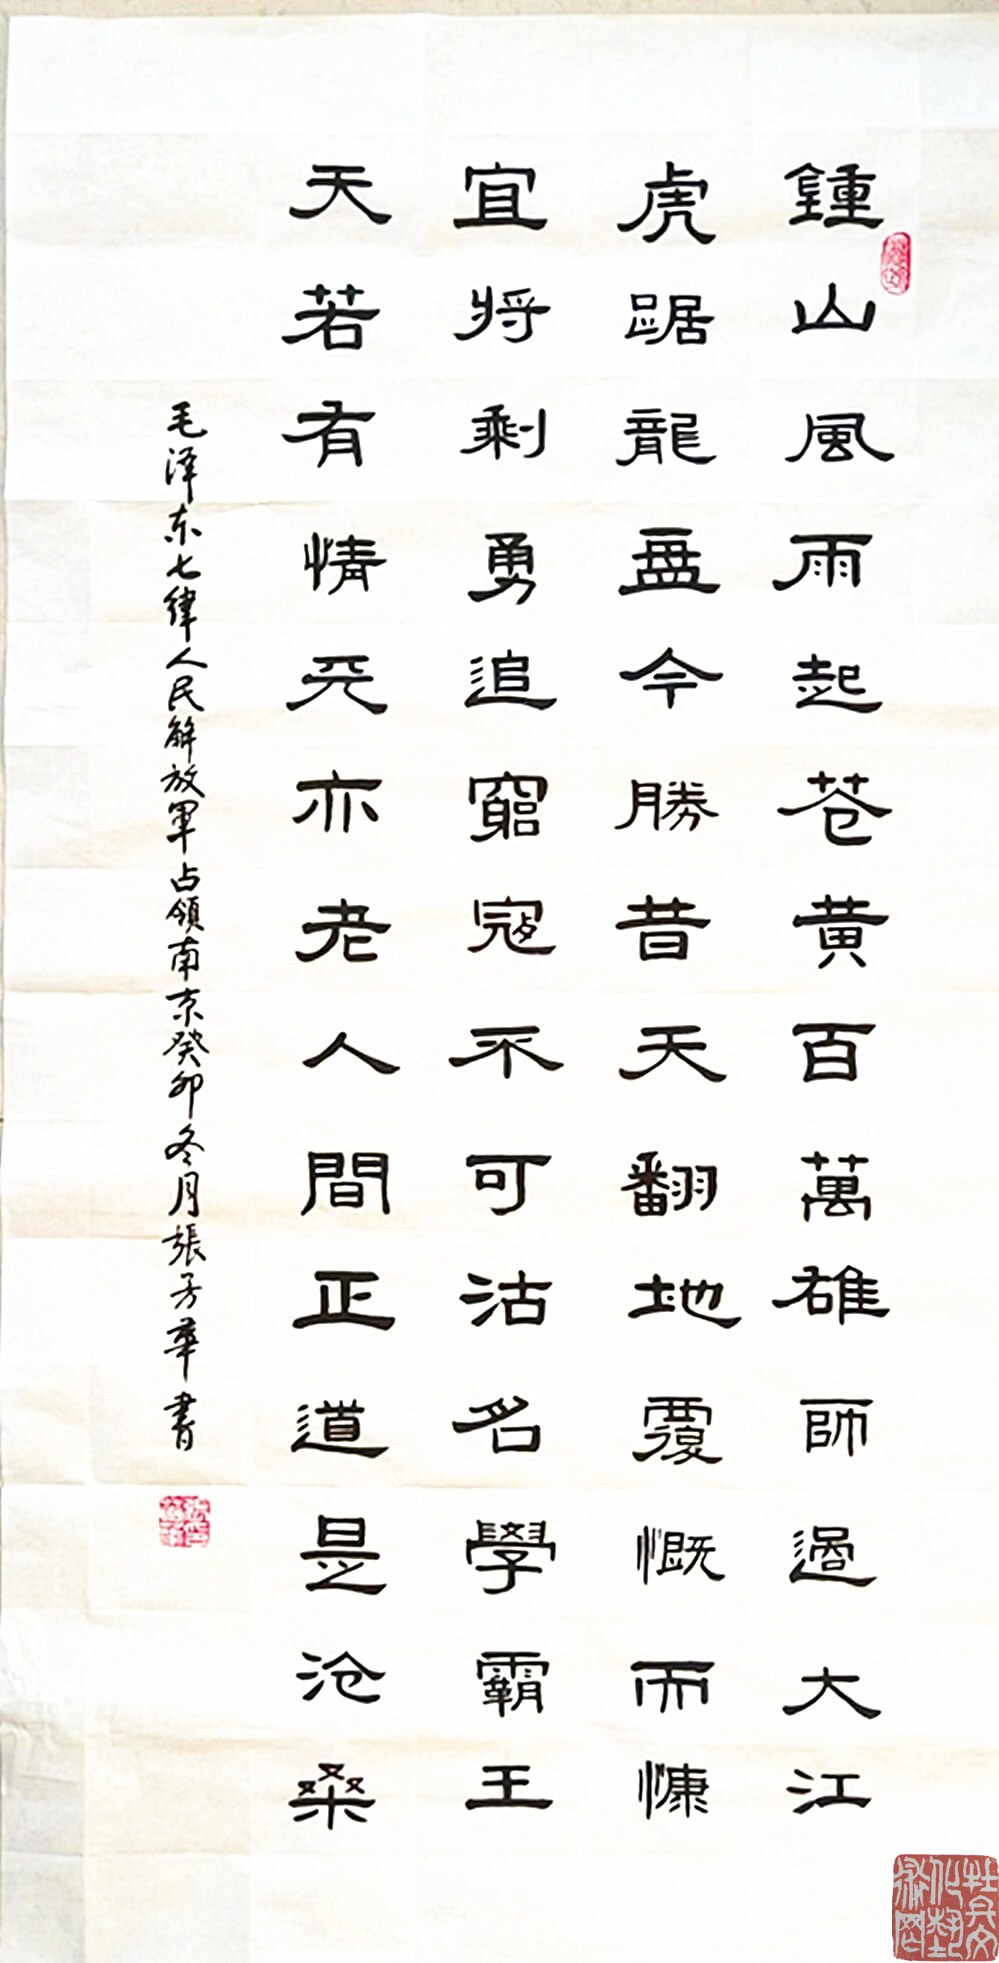 鍾山風雨起苍黄百萬雄師過大江
虎踞龍盘今勝昔天翻地覆慨而慷
宜将剩勇追窮寇不可沽名學霸王
天若有情天亦老人間正道是沧桑
毛泽东七律人民解放軍占領南京癸卯冬月張芳華書